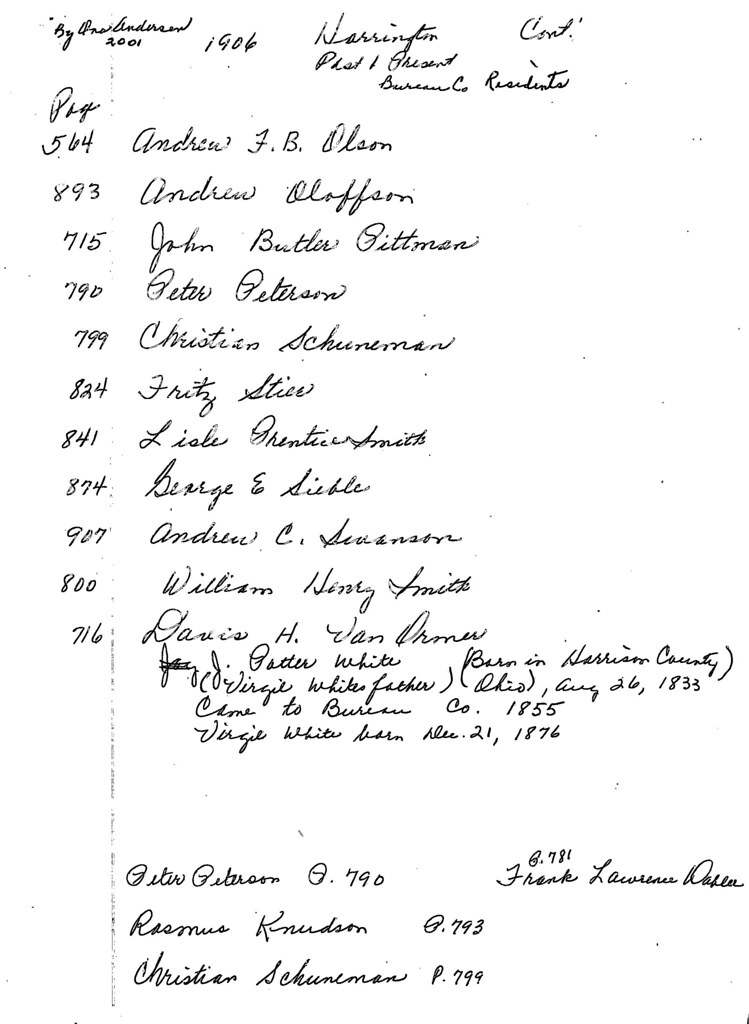 By Ora Anderson
2001
1906 Harrington Cont.
Past & Present
Bureau Co Residents
Pag
564 Andrew F. B. Olson
893 Andrew Oloffson
715 John Butler Pittman
790 Peter Peterson
799 Christian Schuneman
824 Fritz
841 Lisle Prentice Smith
874 George E Sieble
907 Andrew C. Swanson
800 William Henry Smith
716 Davis H. Van Ormer
J. Potter White (Born in Harrison County)
(Virgil Whites father) (Ohio), Aug 26, 1833
Came to Bureau Co. 1855
Virgil White born Dec. 21, 1876
P. 781
Peter Peterson P. 790 Frank Lawrence
Rasmus Knudson P. 793
Christian Schuneman P. 799